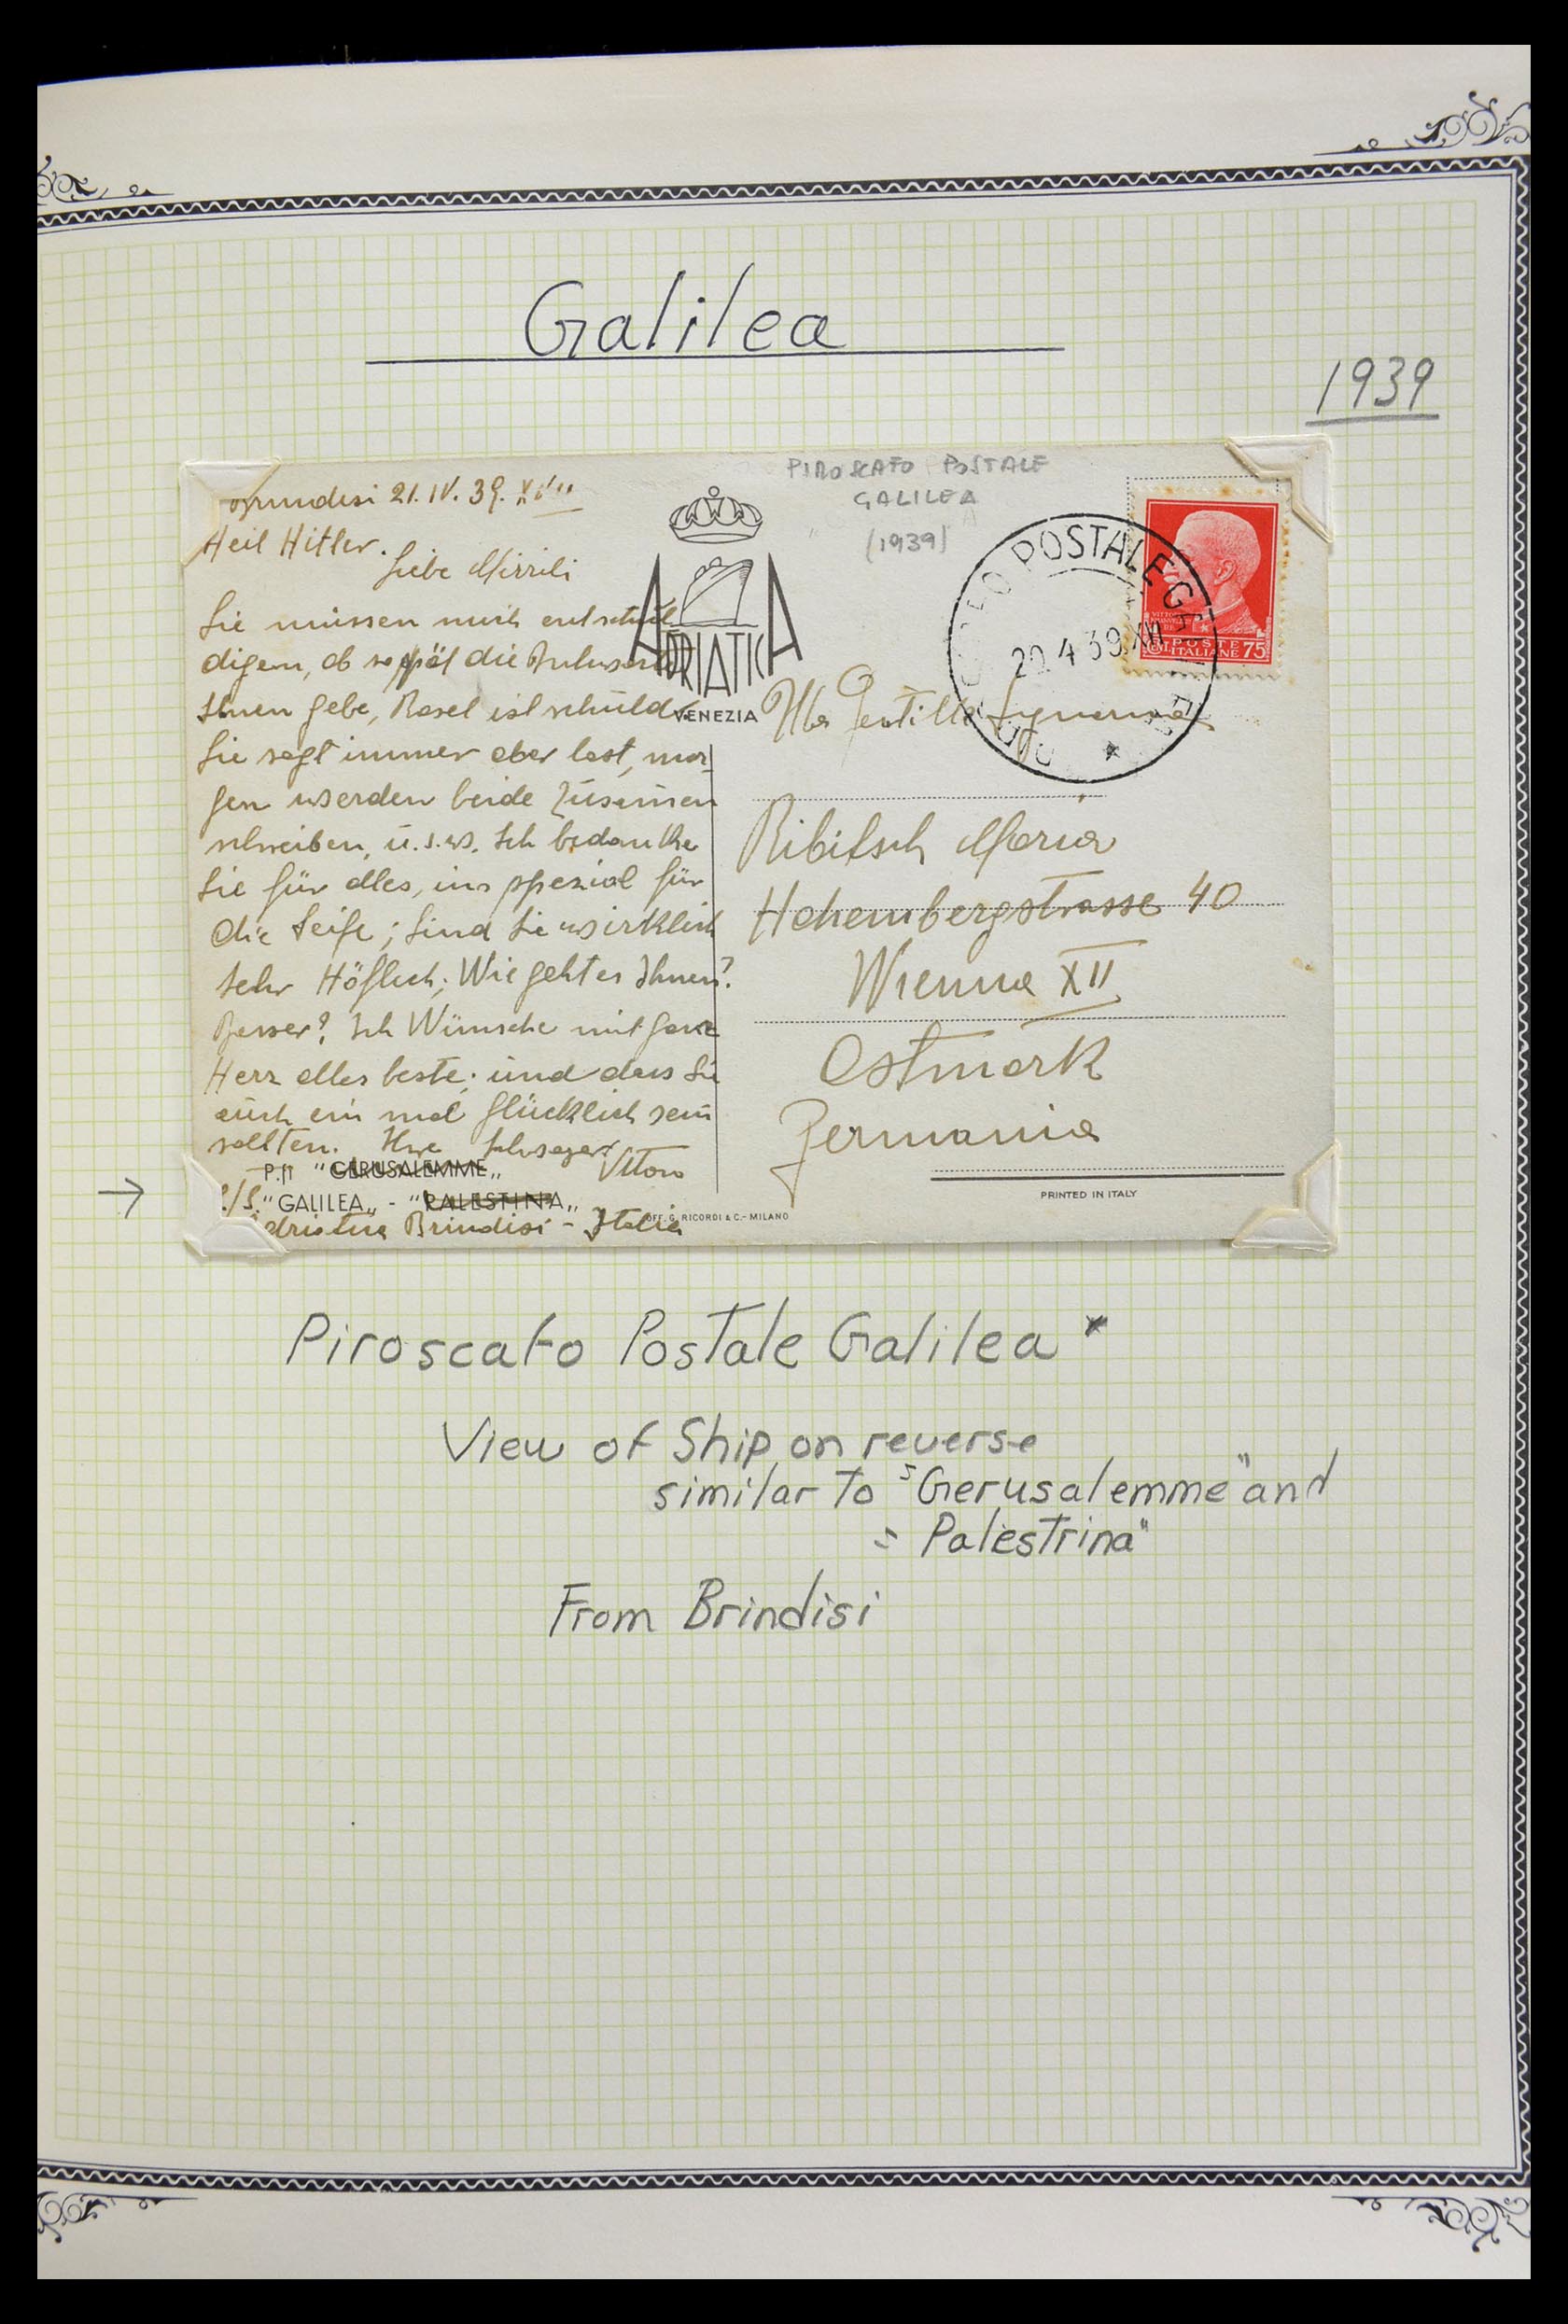 Galilea
1939
PIROSCAFO POSTALE
GALILEA
(1939)
Brundisi 21. IV. 39. XVII
Heil Hitler.
Liebe Mirrili
Sie müssen mich entschul
digen, ob so spät die
Ihnen gebe, Rosel ist schuld.
Sie sagt immer aber last, mor
gen werden beide zusamen
schreiben, u.s.w. Ich bedanke
Sie für alles, ins spezial für
die Seife; Sind Sie wirklich
sehr Höflich; Wie geht es Ihnen?
Besser? Ich Wünsche mit ganz
Herz alles beste; und dass Sie
auch ein mal glücklich sein
sollten. Ihre
P.fi "GERUSALEMME„
"GALILEA„ - "PALESTINA„
Brindisi - Italia
ADRIATICA
VENEZIA
POSTALE GA
20 4 39 XVII
POSTE
ITALIANE 75
Alla Gentille
Ribitsch Maria
Hohembergstrasse 40
Wienna XII
Ostmark
Germania
PRINTED IN ITALY
OFF. G. RICORDI & C. - MILANO
Piroscafo Postale Galilea*
View of Ship on reverse
similar to "Gerusalemme" and
" Palestrina"
From Brindisi